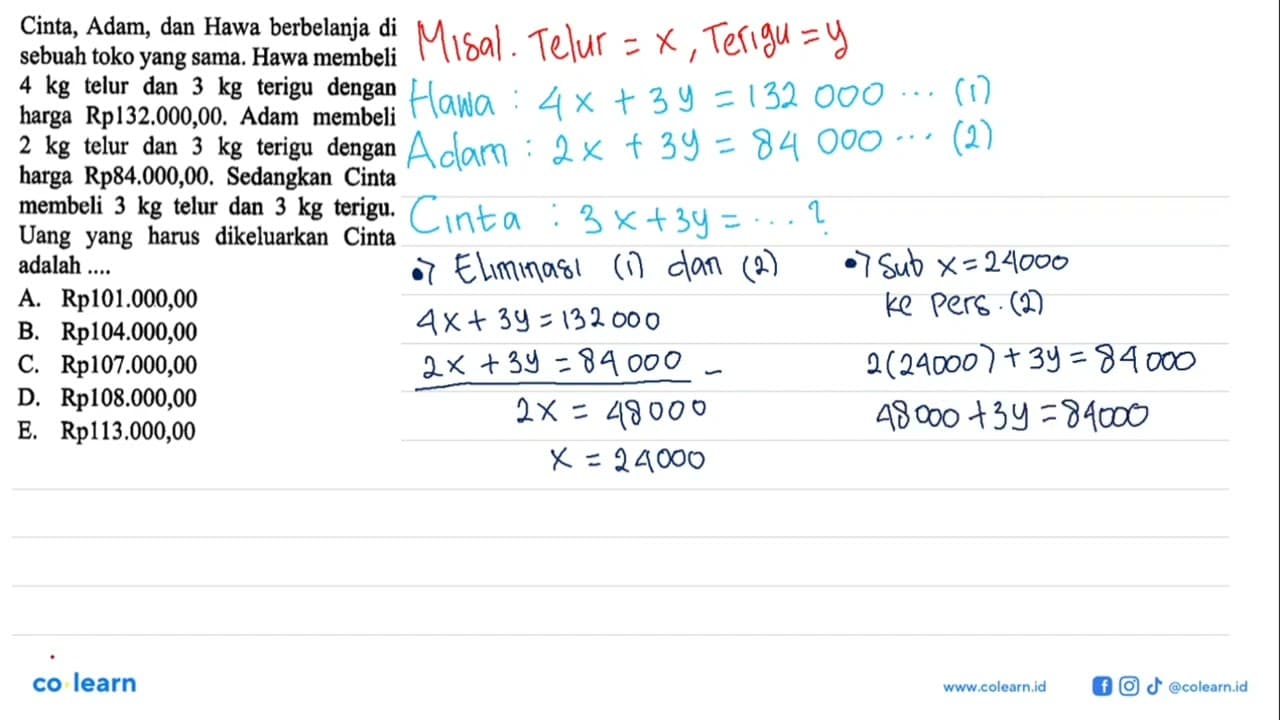 Cinta, Adam, dan Hawa berbelanja di
sebuah toko yang sama. Hawa membeli
4 kg telur dan 3 kg terigu dengan
harga Rp132.000,00. Adam membeli
2 kg telur dan 3 kg terigu dengan
harga Rp84.000,00. Sedangkan Cinta
membeli 3 kg telur dan 3 kg terigu.
Uang yang harus dikeluarkan Cinta
adalah ....
A. Rp101.000,00
B. Rp104.000,00
C. Rp107.000,00
D. Rp108.000,00
E. Rp113.000,00
Misal. Telur = x, Terigu = y
Hawa : 4x + 3y = 132 000 ... (1)
Adam : 2x + 3y = 84 000 ... (2)
Cinta : 3x + 3y = ... ?
•> Eliminasi (1) dan (2)
4x + 3y = 132 000
2x + 3y = 84 000 -
2x = 48 000
x = 24000
•> Sub x = 24000
ke Pers. (2)
2(24000) + 3y = 84 000
48 000 + 3y = 84000
co learn
www.colearn.id
@colearn.id